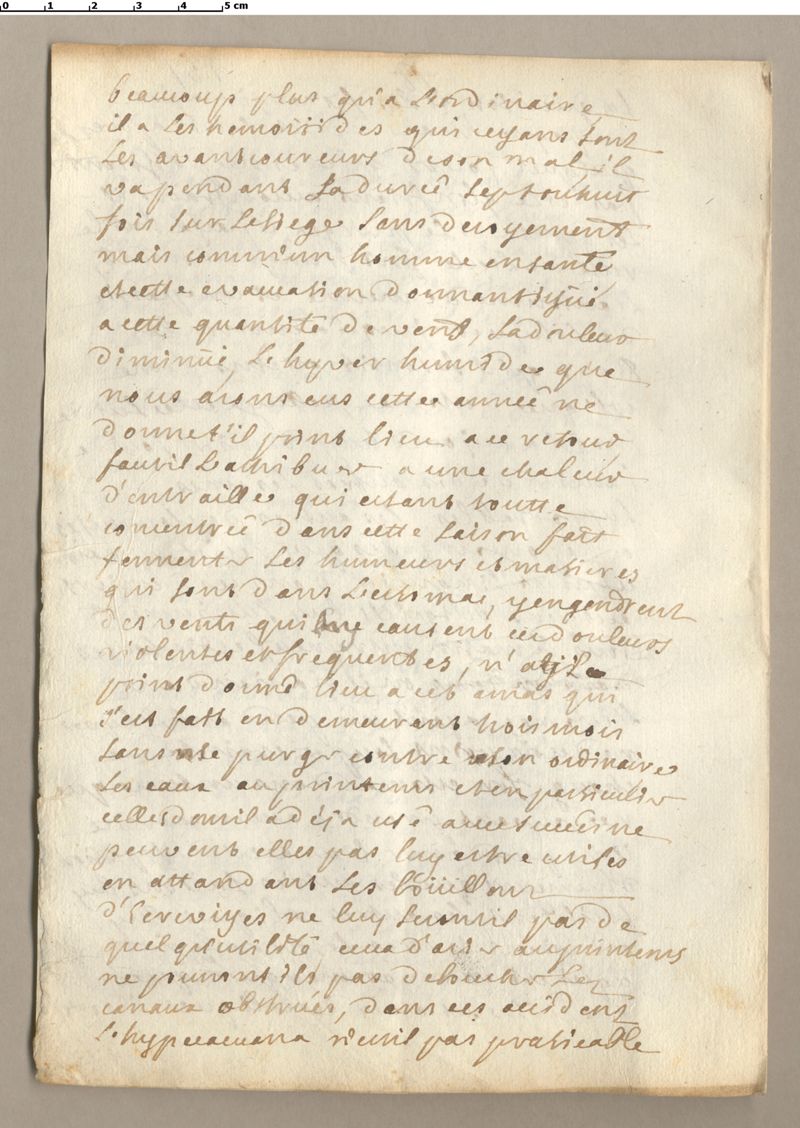 0 1 2 3 4 5 cm
beaucoup plus qu'a L'ordinaire
il a Les hemoroides qui ceyans sont
Les avantcoureurs deson mal, il
va pendant Sa dureé Sept ouhuit
fois sur Lesiege Sans devoyement
mais comm'un homme ensanté
etcette evacuation donnant issüe
a cette quantité de vent, Ladouleur
diminüe, Le hyver humide que
nous avons eus cettee anneé ne
donnet'il point lieu a ce retour
fautil L'atribuer a une chaleur
d'entrailles qui estant toutte
concentreé dans cette Saison fait
fermenter Les humeurs et matieres
qui sont dans L'estomac, yengendrent
des vents qui causent cesdouleurs
violentes et frequentes, n'a
point donné lieu a cet amas qui
s'est fait en demeurent trois mois
sans se purger contre son ordinaire
Les eaux au printems et en particulier
celles dont il a déja usé avec succes ne
peuvent elles pas luy estre utiles
en attandant Les boüillons
d'Ecrevisses ne luy seront il pas de
quelqu'utilité, ceux d'acier auprintems
ne pouront ils pas deboucher Les
canaux obstrués, dans ces accidens
L'hypecacuana n'estil pas praticable